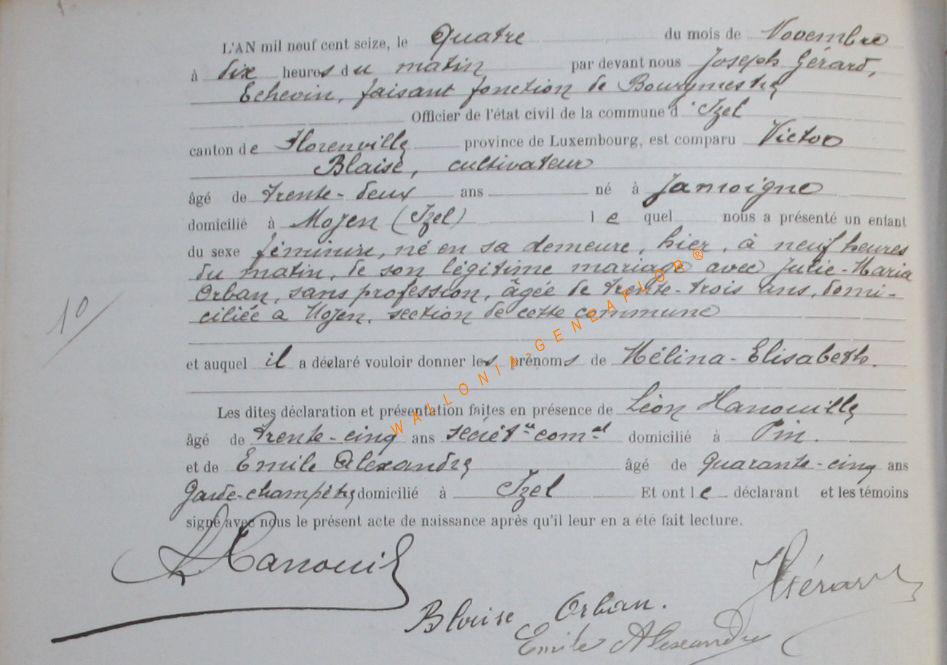 L'AN mil neuf cent seize, le quatre du mois de Novembre
à dix heures du matin par devant nous Joseph Gérard,
Echevin, faisant fonction de Bourgmestre
Officier de l'état civil de la commune d'Izel
canton de Florenville province de Luxembourg, est comparu Victor
Blaise, cultivateur
âgé de trente-deux ans né à Jamoigne
domicilié à Moyen (Izel) le quel nous a présenté un enfant
du sexe féminin, né en sa demeure, hier, à neuf heures
du matin, de son légitime mariage avec Julie-Maria
Orban, sans profession, âgée de trente-trois ans, domi-
ciliée à Moyen, section de cette commune
10
et auquel il a déclaré vouloir donner les prénoms de Hélina-Elisabeth.
Les dites déclaration et présentation faites en présence de Léon Hanouille
âgé de trente-cinq ans secrétre comal domicilié à Pin.
et de Emile Alexandre âgé de quarante-cinq ans
Garde-champêtre domicilié à Izel Et ont le déclarant et les témoins
signé avec nous le présent acte de naissance après qu'il leur en a été fait lecture.
WALLONIA-GENEAFLOR®
Hanouille
Blaise Orban. JGérard
Emile Alexandre